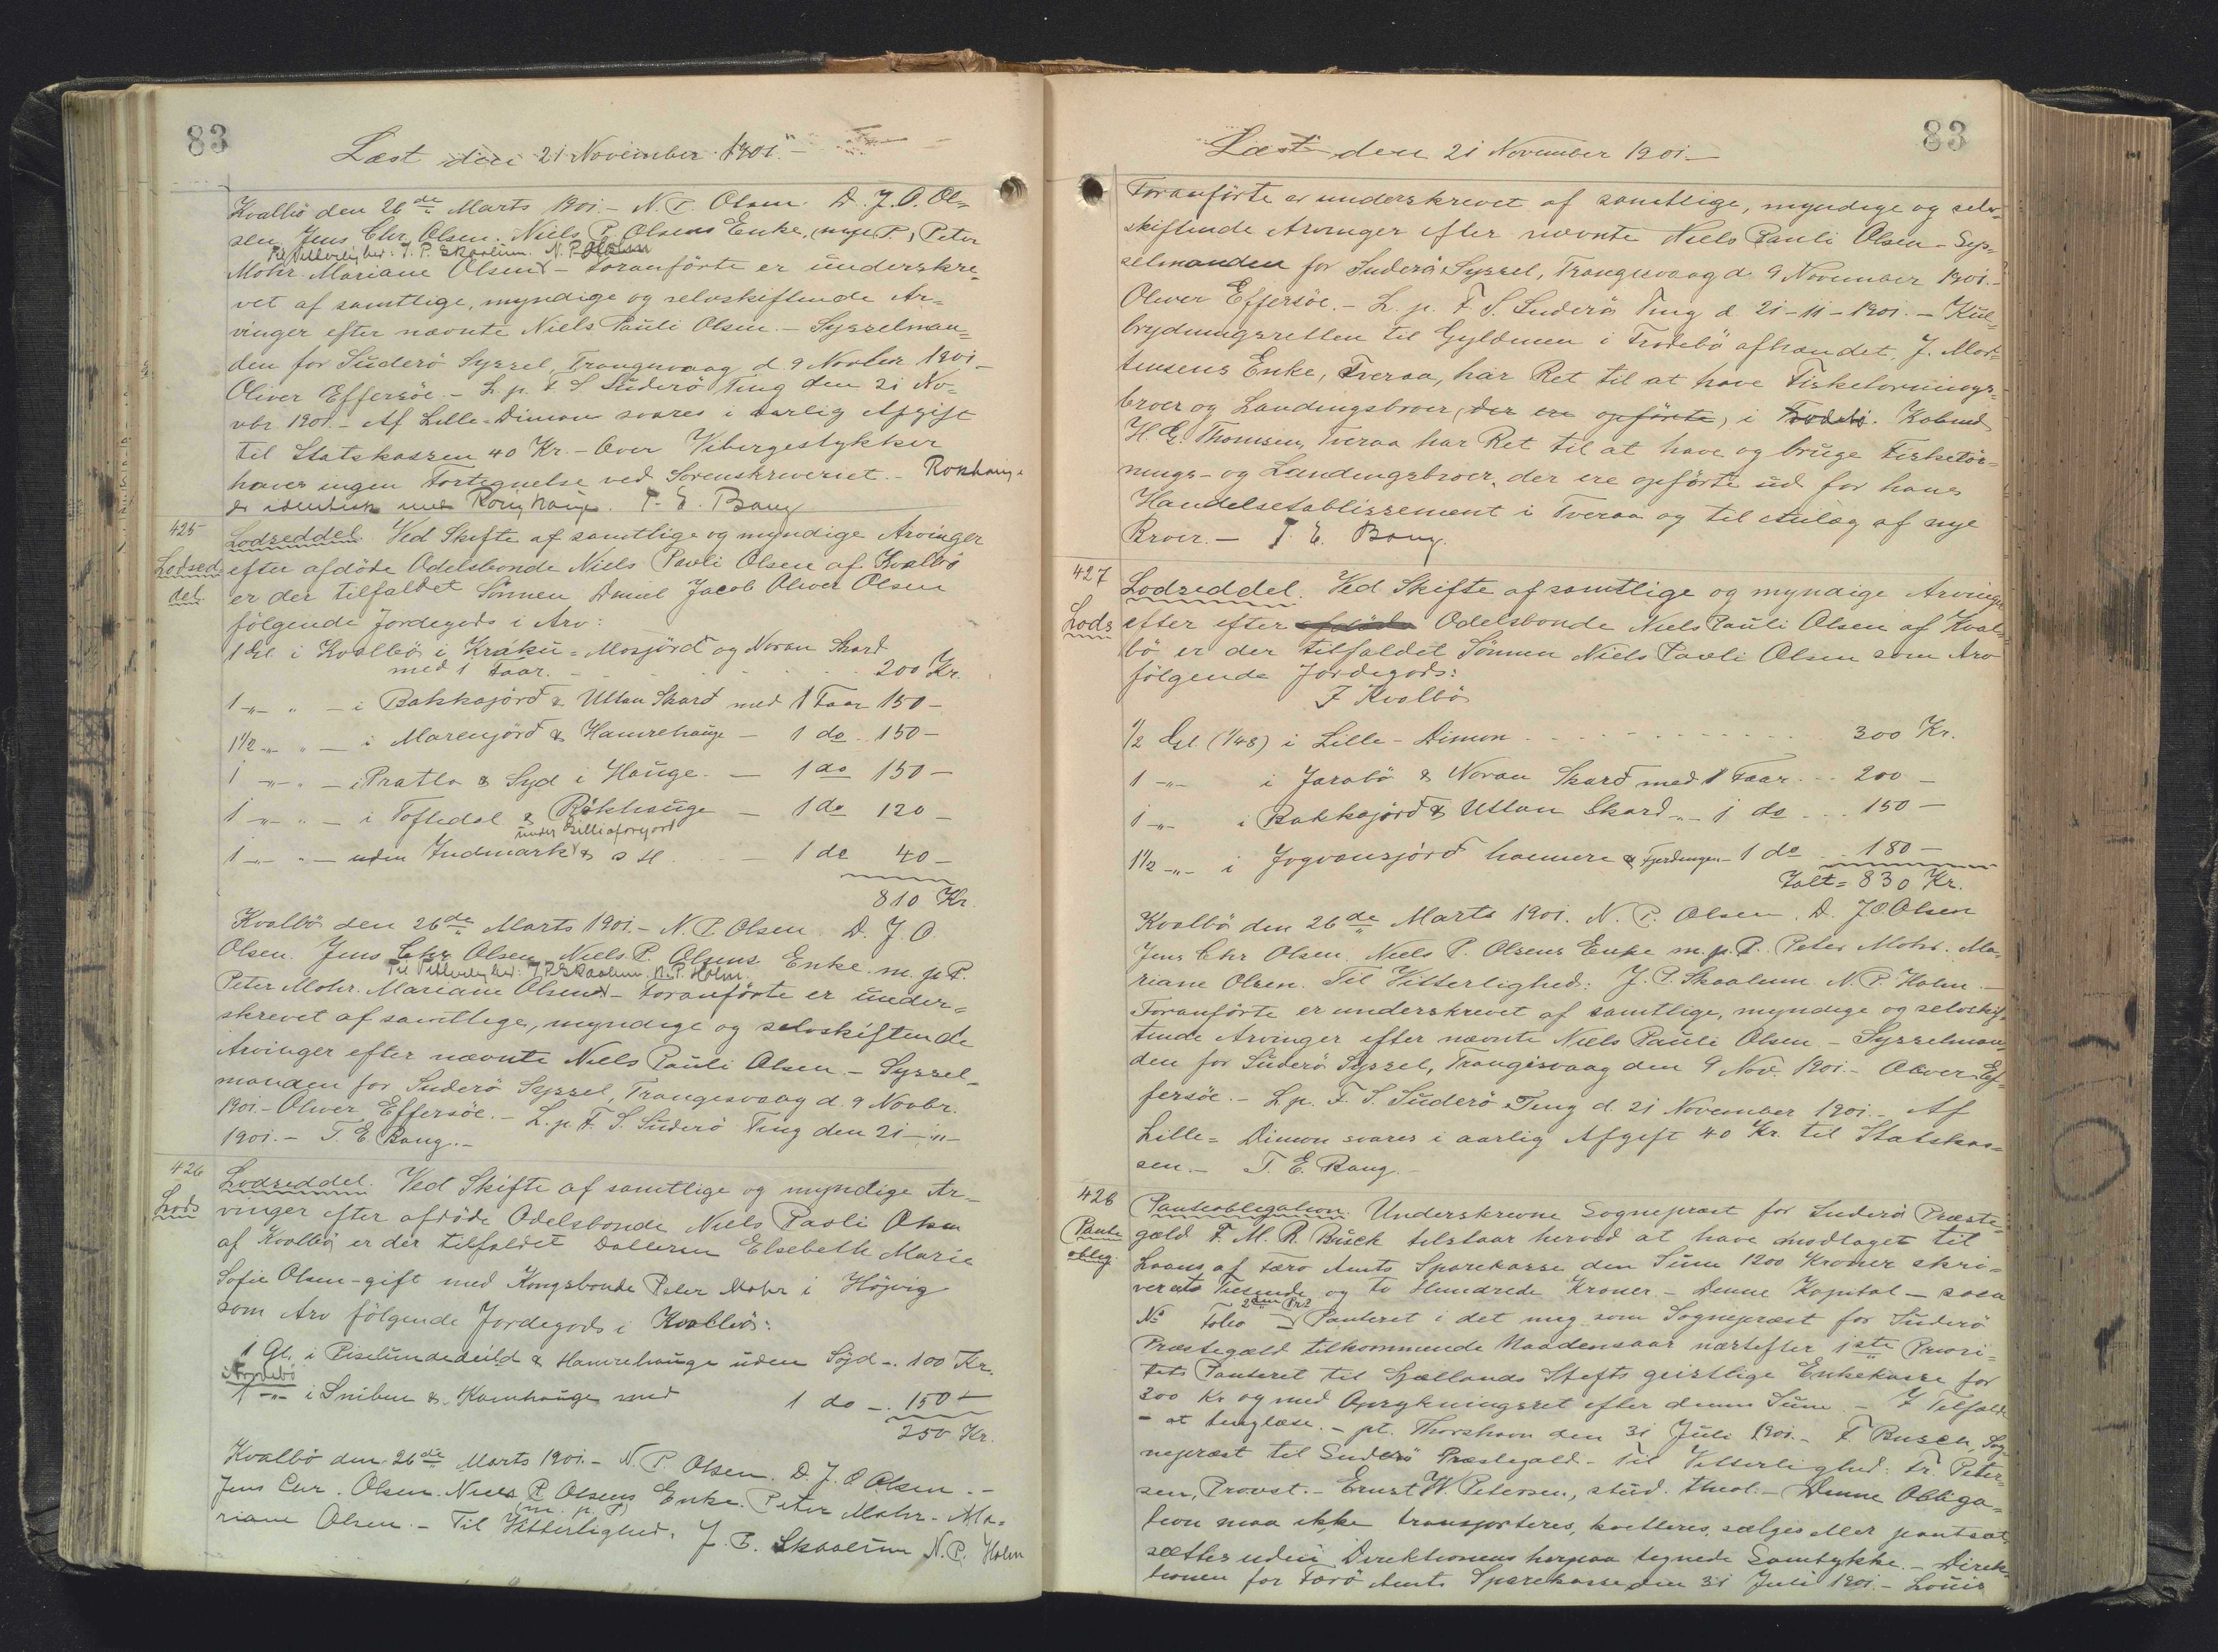 83
Læst den 21 November 1901.-
Kvalbö den 26de Marts 1901.- N. P. Olsen. D. J. O. Ol=
sen. Jens Chr. Olsen. Niels P. Olsens Enke, (m. p. P.) Peter
Til Vitterlighed: J. P. Skaalum. N. P. Holm
Mohr. Mariane Olsen - Foranförte er underskre=
vet af samtlige, myndige og selvskiftende Ar=
vinger efter nævnte Niels Pauli Olsen.- Sysselman=
den for Suderö Syssel, Trangisvaag d 9 Novber 1901.-
Oliver Effersöe.- L. p. F. S. Suderö Ting den 21 No=
vbr 1901.- Af Lille-Dimon svares i aarlig Afgift
til Statskassen 40 Kr.- Over Vibergestykker
haves ingen Fortegnelse ved Sorenskriveriet.- Rokhauge
er identisk med Roinhauge. T. E. Bang
425
Lodsed=
del.
Lodseddel. Ved Skifte af samtlige og myndige Arvinger
efter afdöde Odelsbonde Niels Pauli Olsen af Kvalbö
er der tilfaldet Sönnen Daniel Jacob Oliver Olsen
fölgende Jordegods i Arv:
1 Gl. i Kvalbö i Kráku-Mosjörd og Noran Skard
med 1 Faar. 200 Kr.
1 -„- „ - i Bakkajörd & Uttan Skard med 1 Faar 150 -
1½ -„- „ - i Marenjörd & Hamrehauge - 1 do. 150 -
1 -„- „ - i Pratla & Syd i Hauge. - 1 do 150 -
1 -„- „ - i Toftedal & Rökhauge - 1 do 120 -
under Gilliaforgord
1 -„- „ - uden Indmark & - 1 do 40 -
810 Kr.
Kvalbö den 26de Marts 1901.- N. P. Olsen. D. J. O.
Olsen. Jens Chr. Olsen. Niels P. Olsens Enke m. p. P.
Til Vitterlighed: J P Skaalum. N. P. Holm.
Peter Mohr. Mariane Olsen - Foranförte er under=
skrevet af samtlige, myndige og selvskiftende
Arvinger efter nævnte Niels Pauli Olsen.- Syssel=
manden for Suderö Syssel, Trangesvaag d. 9 Novbr.
1901.- Oliver Effersöe.- L. p. F. S. Suderö Ting den 21-11-
1901.- T. E. Bang.-
426
Lods
Lodseddel. Ved Skifte af samtlige og myndige Ar=
vinger efter afdöde Odelsbonde Niels Pauli Olsen
af Kvalbö er der tilfaldet Datteren Elsebeth Marie
Sofie Olsen - gift med Kongsbonde Peter Mohr i Höjvig
som Arv fölgende Jordegods i Kvalbö:
1 Gl. i Piselundadeild & Hamrehauge uden Söjd -. 100 Kr.
Frodebö
1 -„- i Sniben & Kamhauge med 1 do -. 150 -
250 Kr.
Kvalbö den 26de Marts 1901.- N. P. Olsen. D. J. O Olsen.-
Jens Chr. Olsen. Niels P. Olsens Enke. Peter Mohr - Ma=
(m. p. P)
riane Olsen.- Til Vitterlighed. J. P. Skaalum N. P. Holm
83
Læst den 21 November 1901.-
Foranförte er underskrevet af samtlige, myndige og selv=
skiftende Arvinger efter nævnte Niels Pauli Olsen - Sys=
selmanden for Suderö Syssel, Trangisvaag d. 9 November 1901.-
Oliver Effersöe.- L. p. F. S. Suderö Ting d. 21-11-1901.- Kul=
brydningsretten til Gyldmen i Frodebö afhændet. J. Mor=
tensens Enke, Tveraa, har Ret til at have Fisketörrings=
broer og Landingsbroer (der ere opförte) i Frodebö. Kobmd
H. E. Thomsen, Tveraa har Ret til at have og bruge Fisketör=
nings- og Landingsbroer, der ere opförte ud for hans
Handelsetablissement i Tveraa og til Anlæg af nye
Broer.- T. E. Bang.
427
Lods
Lodseddel. Ved Skifte af samtlige og myndige Arvinger
efter efter afdöde Odelsbonde Niels Pauli Olsen af Kval=
bö er der tilfaldet Sönnen Niels Pauli Olsen som Arv
fölgende Jordegods:
I Kvalbö
½ Gl (1/48) i Lille-Dimon 300 Kr.
1 -„- i Jarabö & Noran Skard med 1 Faar... 200 -
1 -„- i Bakkajörd & Uttan Skard -„- 1 do ... 150 -
1½ -„- i Jogvansjörd hamere & Fjerdingen - 1 do 180 -
Ialt= 830 Kr.
Kvalbö den 26de Marts 1901. N. P. Olsen. D. J O Olsen
Jens Chr Olsen. Niels P. Olsens Enke m. p. P. Peter Mohr. Ma=
riane Olsen. Til Vitterlighed: J. P. Skaalum N. P. Holm.-
Foranförte er underskrevet af samtlige, myndige og selvskif=
tende Arvinger efter nævnte Niels Pauli Olsen - Sysselman=
den for Suderö Syssel, Trangisvaag den 9 Nov. 1901.- Oliver Ef=
fersöe.- L. p. F. S. Suderö Ting d. 21 November 1901.- Af
Lille= Dimon svares i aarlig Afgift 40 Kr. til Statskas=
sen.- T. E. Bang.-
428
Pante
oblig.
Panteobligation. Underskrevne Sognepræst for Suderö Præste=
gæld F. M. R. Busch tilstaar herved at have modtaget til
Laans af Færö Amts Sparekasse den Sum 1200 Kroner skri=
ver et Tusende og to Hundrede Kroner.- Denne Kapital - saa
2den Pr
№ Folio - Panteret i det mig som Sognepræst for Suderö
Præstegæld tilkommende Naadensaar næstefter 1ste Priori=
tets Panteret til Sjællands Stifts geistlige Enkekasse for
300 Kr og med Oprykningsret efter denne Sum.- I Tilfælde
- at tinglæse.- pt. Thorshavn den 31 Juli 1901.- F. Busch, Sog=
nepræst til Suderö Præstegæld.- Til Vitterlighed: Fr. Peter=
sen, Provst.- Ernst W. Petersen, stud. theol.- Denne Obliga=
tion maa ikke transporteres, kvitteres, sælges eller pantsat
sættes uden Direktionens herpaa tegnede Samtykke.- Direk=
tionen for Færö Amts Sparekasse den 31 Juli 1901.- Louis